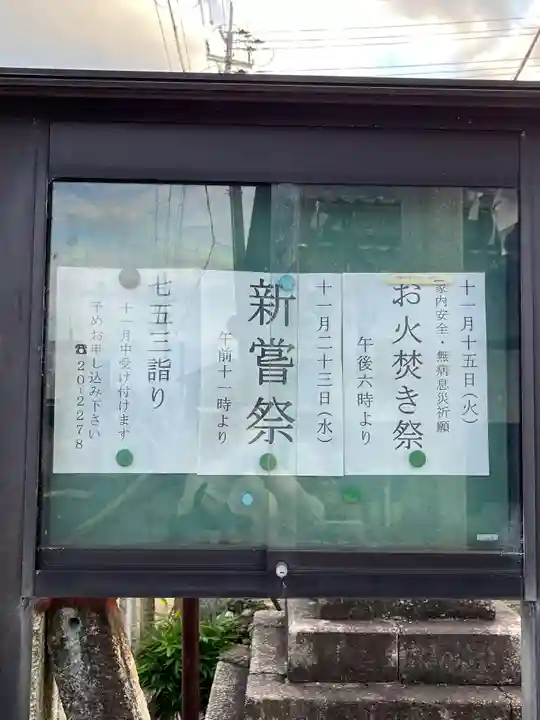 十一月十五日(火)
家内安全・無病息災祈願
お火焚き祭
午後六時より
十一月二十三日(水)
新嘗祭
午前十一時より
七五三詣り
十一月中受け付けます
予めお申し込み下さい
☎20-2278